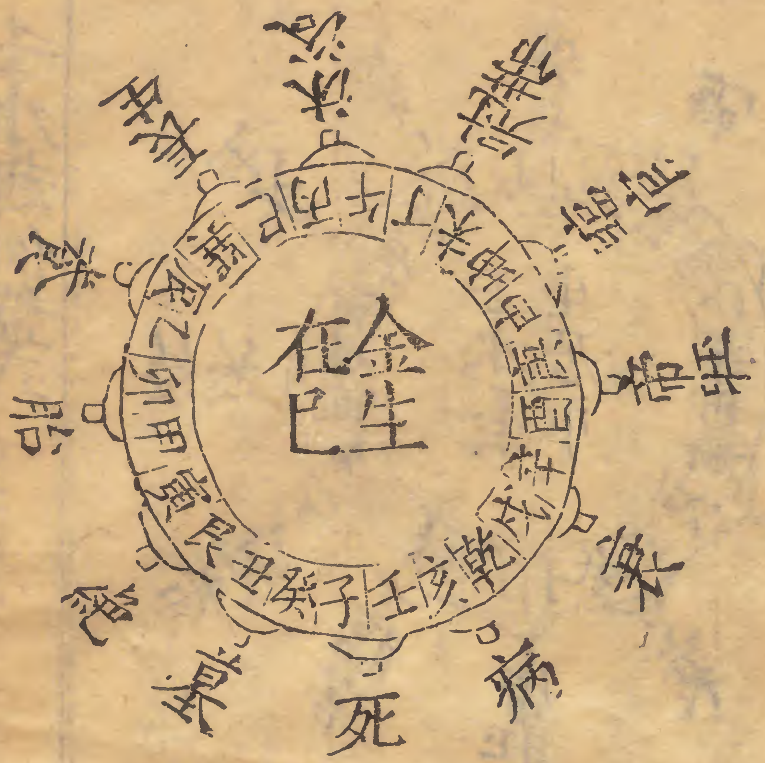 金生
在巳
巽巳丙午丁未坤申庚酉辛戌乾亥壬子癸丑艮寅甲卯乙辰
長生
沐浴
冠帶
臨官
帝旺
衰
病
死
墓
絕
胎
養